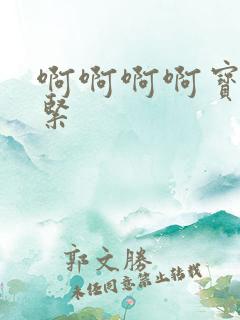 啊啊啊啊寶
緊
郭文勝
未经同意禁止转载